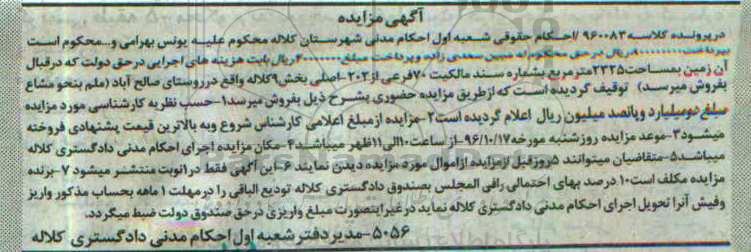 آگهی مزایده
در پرونده کلاسه ۹۶۰۰۸۳ /احکام حقوقی شعبه اول احکام مدنی شهرستان کلاله محکوم علیه یونس بهرامی و...محکوم است
بپرداخت ریال در حق محکوم له مبین سعدی زاده وپرداخت مبلغ ریال بابت هزینه های اجرایی درحق دولت که درقبال
آن زمین بمساحت۲۳۲۵مترمربع بشماره سند مالکیت ۷۰فرعی از۲۰۳-اصلی بخش۹کلاله واقع درروستای صالح آباد (ملم بنحو مشاع
بفروش میرسد) توقیف گردیده است که ازطریق مزایده حضوری بشرح ذیل بفروش میرسد۱-حسب نظریه کارشناسی مورد مزایده
مبلغ دومیلیارد وپانصد میلیون ریال اعلام گردیده است۲-مزایده ازمبلغ اعلامی کارشناس شروع وبه بالاترین قیمت پیشنهادی فروخته
میشود۳-موعد مزایده روزشنبه مورخه ۹۶/۱۰/۱۷-از ساعت۱۰الی۱۱ظهر میباشد۴-مکان مزایده اجرای احکام مدنی دادگستری کلاله
میباشد۵-متقاضیان میتوانند ۵روزقبل ازمزایده ازاموال مورد مزایده دیدن نمایند ۶-این آگهی فقط در۱نوبت منتشر میشود ۷-برنده
مزایده مکلف است۱۰درصد بهای احتمالی رافی المجلس بصندوق دادگستری کلاله تودیع الباقی را درمهلت ۱ماهه بحساب مذکور واریز
وفیش آنرا تحویل اجرای احکام مدنی دادگستری کلاله نماید درغیراینصورت مبلغ واریزی درحق صندوق دولت ضبط میگردد.
۵۰۵۶-مدیر دفتر شعبه اول احکام مدنی دادگستری کلاله